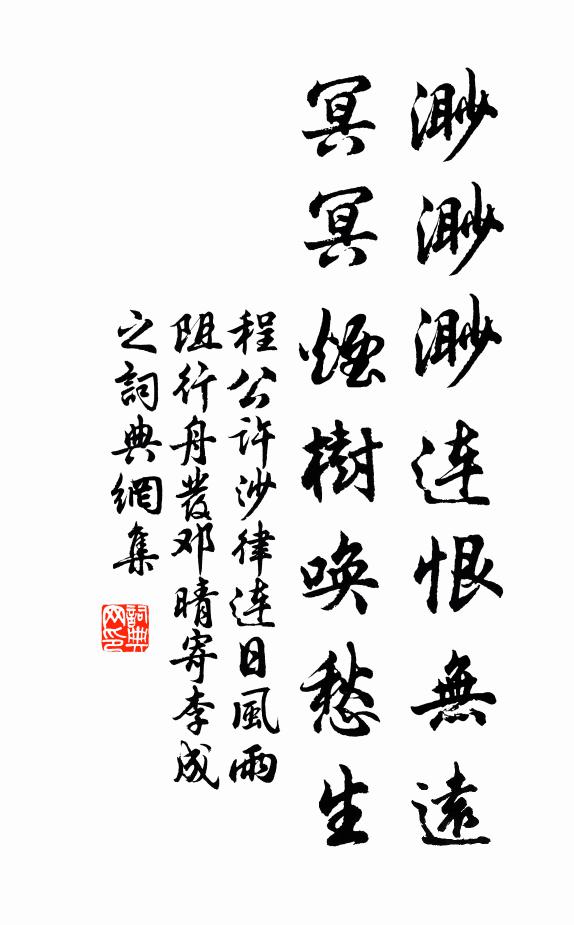 渺渺渺连恨無遠
冥冥煙樹唤愁生
程公许沙律连日風雨
阻行舟發邓晴寄李成
之詞典網集
詞典网印